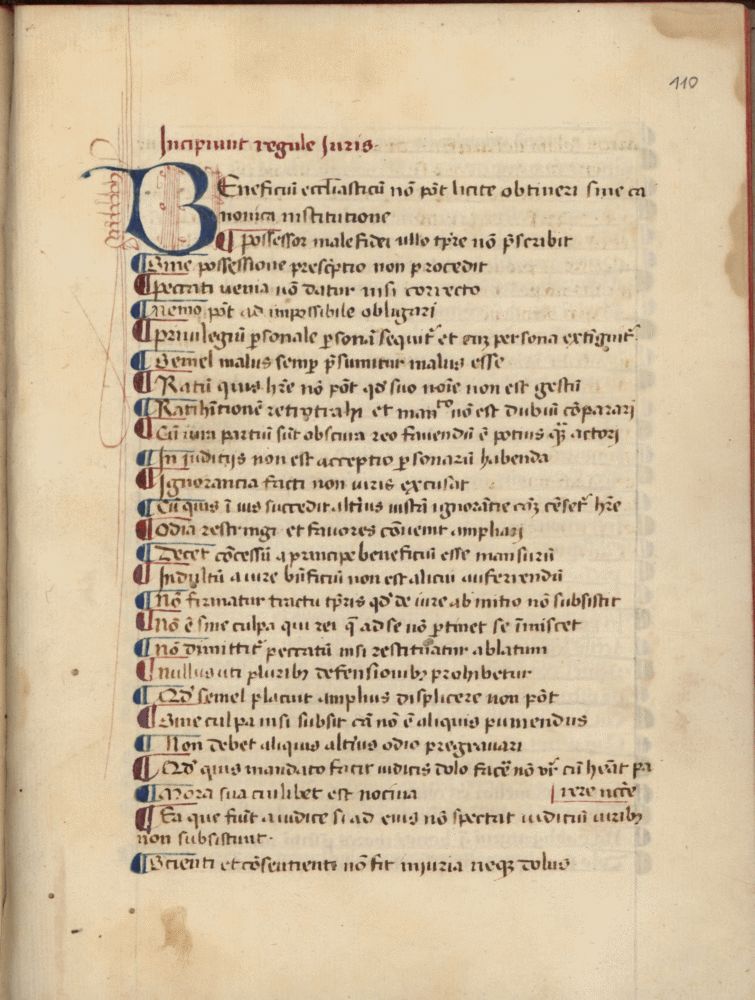 110
Incipiunt regule Juris.
BEneficiū eccl̄iasticū nō pōt licite obtineri sine ca
nonica institutione
¶ Possessor male fidei ullo tp̄re nō p̄scribit
¶ Sine possessione prescp̄tio non procedit
¶ peccati uenia nō datur nisi correcto
¶ Nemo pōt ad impossibile obligari
¶ priuilegiū ꝑsonale ꝑsonā sequit᷑ et cuꝫ persona extīguit᷑.
¶ Semel malus semꝑ p̄sumitur malus esse
¶ Ratū quis hr̄e nō pōt qd̓ suo noīe non est gestū
¶ Ratihītionē retrotrahi et mandato nō est dubiū cōparari
¶ Cū iura partiū sūt obscura reo fauendū ē potius qꝫ̄ actori
¶ In iuditijs non est acceptio ꝑsonarū habenda
¶ Ignorancia facti non iuris excusat
¶ Cū quis ī ius succedit alt̓ius iustā ignorātie cāꝫ cēset᷑ hr̄e
¶ Odia restringi et fauores cōuenit ampliari
¶ Decet cōcessū a principe beneficiū esse mansurū
¶ Indultū a iure bn̄ficiū non est alicui auferrendū
¶ Nō firmatur tractu tp̄ris qd̓ de iure ab initio nō subsistit
¶ Nō ē sine culpa qui rei q̄ ad se nō ꝑtinet se īmiscet
¶ Nō dimittit᷑ peccatū nisi restituatur ablatum
¶ Nullus uti pluribꝫ defensionibꝫ prohibetur
¶ Qd̓ semel placuit amplius displicere non pōt
¶ Sine culpa nisi subsit cā nō ē aliquis puniendus
¶ Non debet aliquis alt̓ius odio pregrauari
¶ Qd̓ quis mandato facit iuditis dolo facē nō vr̄ cū heāt pa
¶ Mora sua cuilibet est nociua
rere nc̄ce
¶ Ea que fiūt a iudice si ad eius nō spectāt iuditiū uiribꝫ
non subsistunt.
¶ Scienti et cōsentienti nō fit iniuria neqꝫ dolus